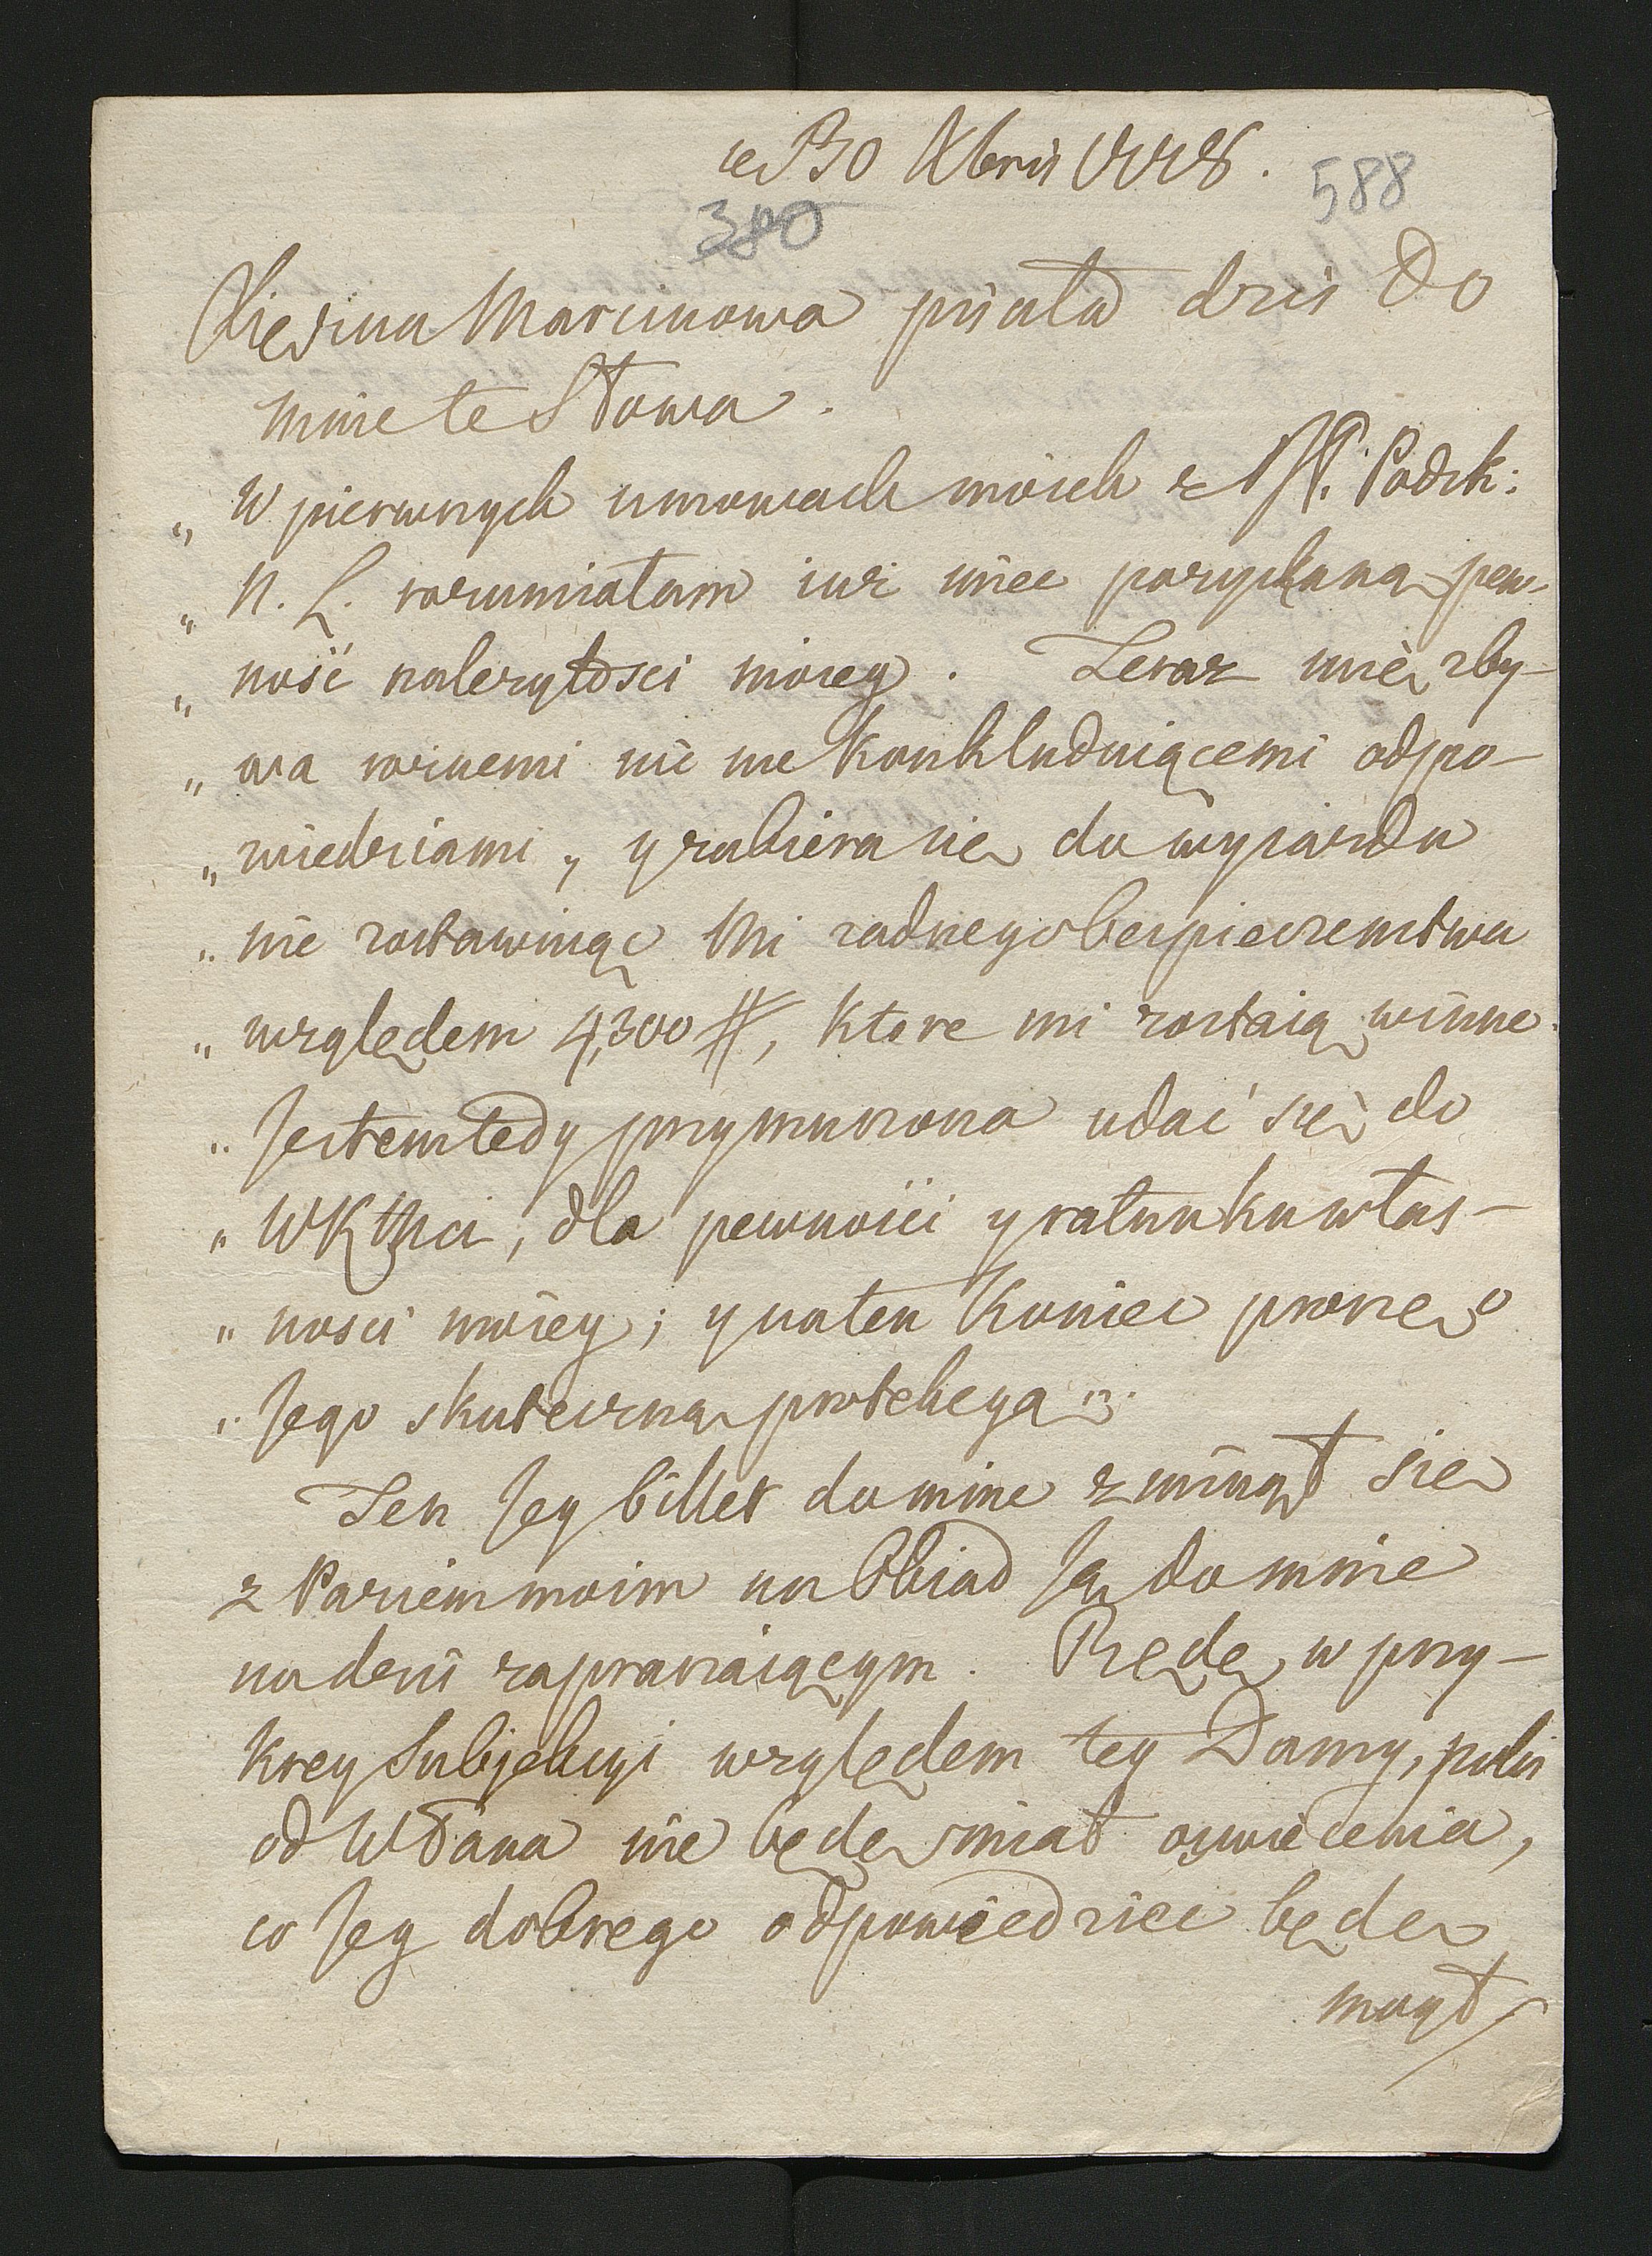 30 Xbris 1778.
588
380
Xiężna Marcinowa pisała dziś do
mnie te Słowa.
„ W pierwszych umowach moich z JP. Podsk:
„ N. L. rozumiałam iuż mieć pozyskaną pew-
„ ność należytości moiey. Teraz mię zby-
„ wa roznemi nic nie konkluduiącemi odpo-
„ wiedziami, y zabiera się do wyiazdu
„ nie zostawuiąc Mi zadnego bespieczenstwa
„ względem 4,300 #, ktore mi zostaią winne.
„ Jestem tedy przymuszona udać się do
„ WKMci, dla pewności y ratunku włas-
„ nosci moiey; y na ten koniec proszę o
„ Jego skuteczną protekcyą".
Ten Jey billet do mnie zminął się
z Paziem moim na Obiad Ją do mnie
na dziś zapraszaiącym. Będę w przy-
krey Subjekcyi względem tey Damy, póki
od WPana nie będę miał oswiecenia,
co Jey dobrego odpowiedziec będę
mogł